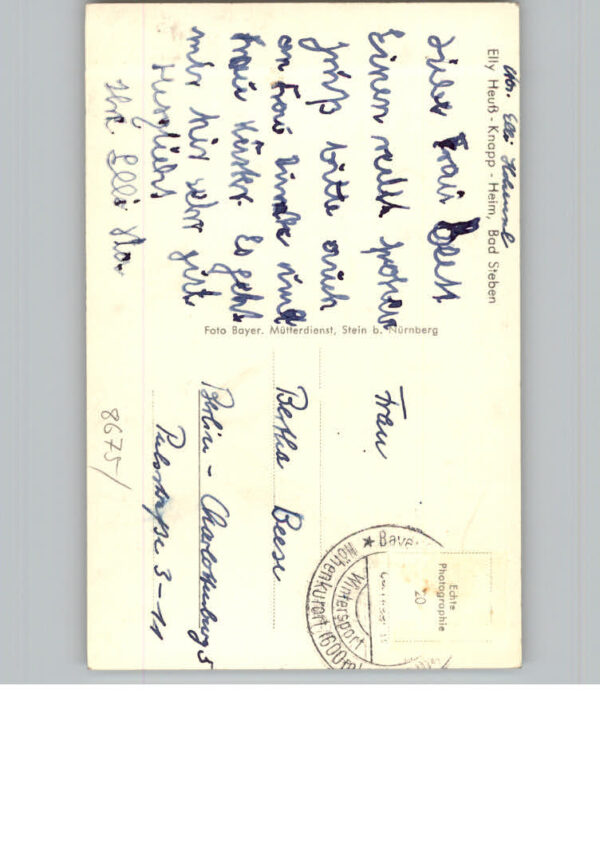 Abs. Elli
Elly Heuß-Knapp-Heim, Bad Steben
Liebe Frau Beese
Einen recht frohen
Gruß bitte auch
an Frau und
Frau Küster. Es geht
mir hir sehr gut
Herzlichst
Ihre Elli
Foto Bayer. Mütterdienst, Stein b. Nürnberg
Frau
Bertha Beese
Berlin-Charlottenburg 5
3-11
8675/
Echte
Photographie
20
Baye
Wintersport
Höhenkurort (600m)